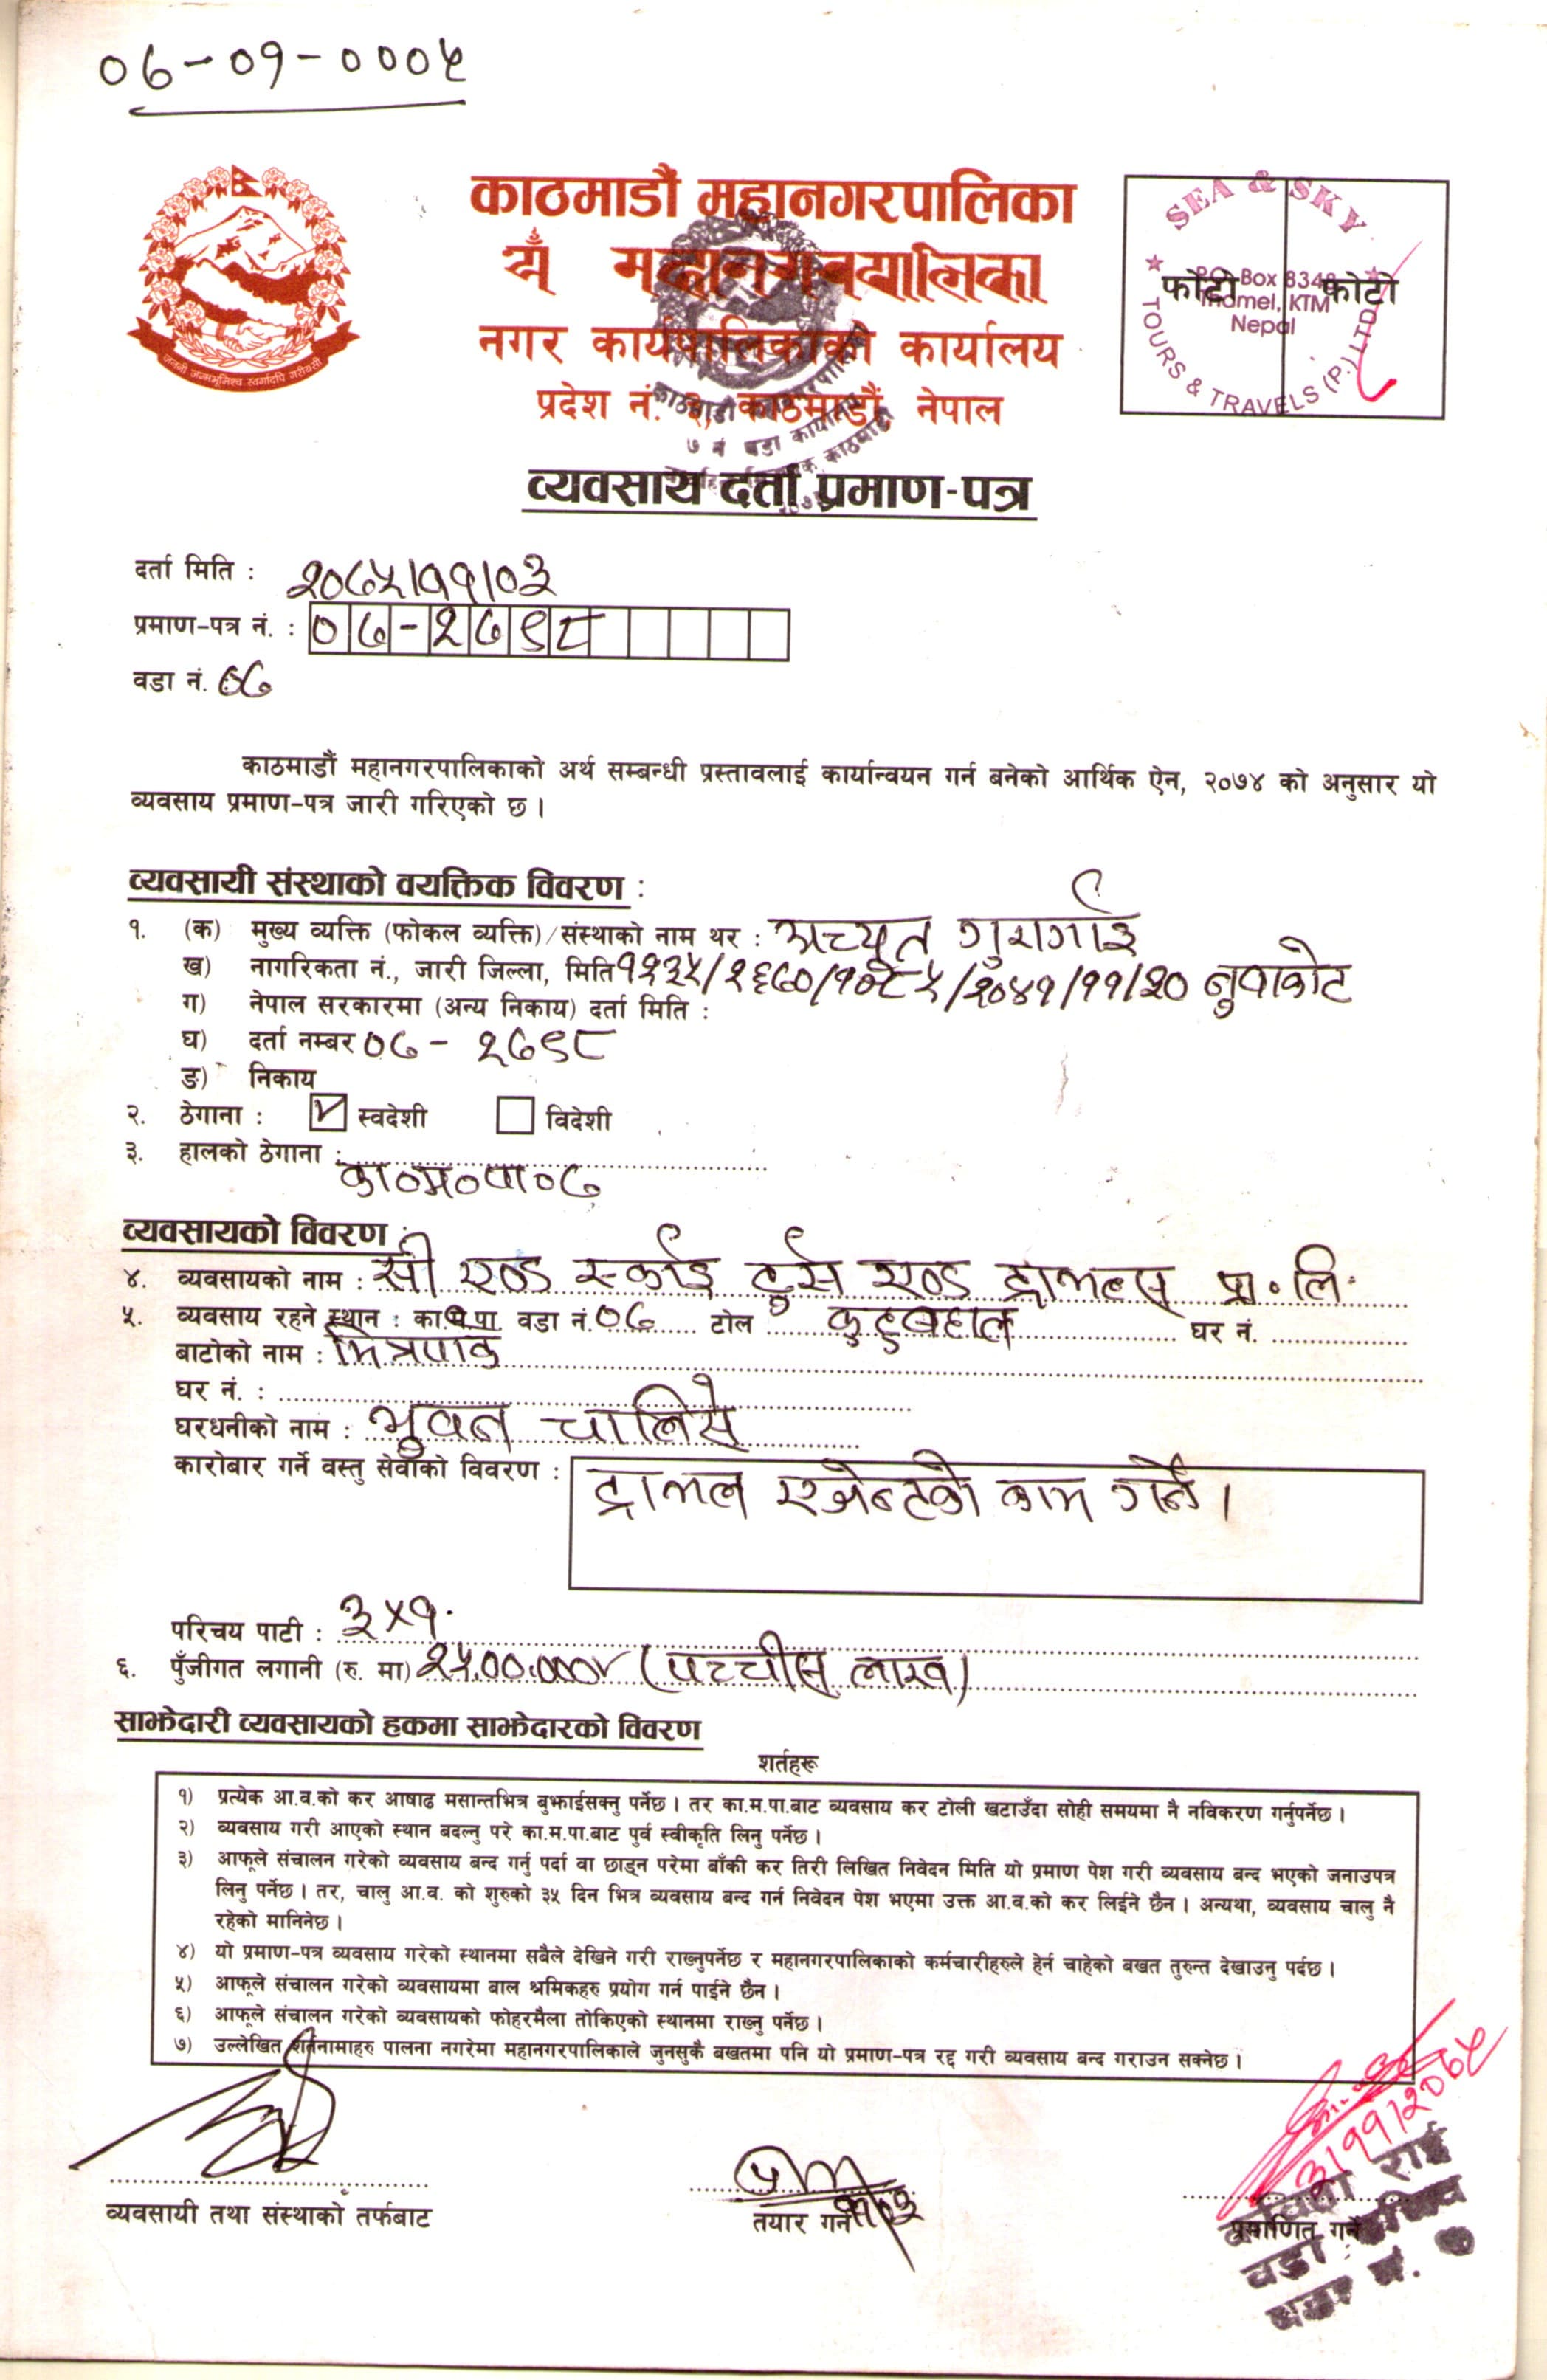 ०६-०९-०००५
काठमाडौं महानगरपालिका
नगर कार्यपालिकाको कार्यालय
प्रदेश नं. ३, काठमाडौं, नेपाल
SEA & SKY
TOURS & TRAVELS (P.) LTD.
P.O. Box 8348
Thamel, KTM
Nepal
फोटो फोटो
काठमाडौं महानगरपालिका
७ नं वडा कार्यालय
व्यवसाय दर्ता प्रमाण-पत्र
दर्ता मिति : २०७५/११/०३
प्रमाण-पत्र नं. : ०७-२७९८
वडा नं. ०७
काठमाडौं महानगरपालिकाको अर्थ सम्बन्धी प्रस्तावलाई कार्यान्वयन गर्न बनेको आर्थिक ऐन, २०७४ को अनुसार यो
व्यवसाय प्रमाण-पत्र जारी गरिएको छ ।
व्यवसायी संस्थाको वयक्तिक विवरण :
१. (क) मुख्य व्यक्ति (फोकल व्यक्ति)/संस्थाको नाम थर : अच्यूत गुरागाई
ख) नागरिकता नं., जारी जिल्ला, मिति /२०४१/११/२० नुवाकोट
ग) नेपाल सरकारमा (अन्य निकाय) दर्ता मिति :
घ) दर्ता नम्बर ०७- २७९८
ङ) निकाय
२. ठेगाना : स्वदेशी विदेशी
३. हालको ठेगाना : का०म०पा०७
व्यवसायको विवरण :
४. व्यवसायको नाम : सी एण्ड स्काई टुर्स एण्ड ट्राभल्स प्रा.लि.
५. व्यवसाय रहने स्थान : का.म.पा. वडा नं. ०७ टोल कुटुबहाल घर नं.
बाटोको नाम : मित्रपार्क
घर नं. :
घरधनीको नाम : भुवन चालिसे
कारोबार गर्ने वस्तु सेवाको विवरण : ट्राभल एजेन्टको काम गर्ने ।
परिचय पाटी : ३x१
६. पुँजीगत लगानी (रु. मा) २५,००,०००/- (पच्चीस लाख)
साझेदारी व्यवसायको हकमा साझेदारको विवरण
शर्तहरू
१) प्रत्येक आ.व.को कर आषाढ मसान्तभित्र बुझाईसक्नु पर्नेछ । तर का.म.पा.बाट व्यवसाय कर टोली खटाउँदा सोही समयमा नै नविकरण गर्नुपर्नेछ ।
२) व्यवसाय गरी आएको स्थान बदल्नु परे का.म.पा.बाट पुर्व स्वीकृति लिनु पर्नेछ ।
३) आफूले संचालन गरेको व्यवसाय बन्द गर्नु पर्दा वा छाड्न परेमा बाँकी कर तिरी लिखित निवेदन मिति यो प्रमाण पेश गरी व्यवसाय बन्द भएको जनाउपत्र
लिनु पर्नेछ । तर, चालु आ.व. को शुरुको ३५ दिन भित्र व्यवसाय बन्द गर्न निवेदन पेश भएमा उक्त आ.व.को कर लिईने छैन । अन्यथा, व्यवसाय चालु नै
रहेको मानिनेछ ।
४) यो प्रमाण-पत्र व्यवसाय गरेको स्थानमा सबैले देखिने गरी राख्नुपर्नेछ र महानगरपालिकाको कर्मचारीहरुले हेर्न चाहेको बखत तुरुन्त देखाउनु पर्दछ ।
५) आफूले संचालन गरेको व्यवसायमा बाल श्रमिकहरु प्रयोग गर्न पाईने छैन ।
६) आफूले संचालन गरेको व्यवसायको फोहरमैला तोकिएको स्थानमा राख्नु पर्नेछ ।
७) उल्लेखित शर्तनामाहरु पालना नगरेमा महानगरपालिकाले जुनसुकै बखतमा पनि यो प्रमाण-पत्र रद्द गरी व्यवसाय बन्द गराउन सक्नेछ ।
३/११/२०७५
व्यवसायी तथा संस्थाको तर्फबाट तयार गर्ने प्रमाणित गर्ने
राई
वडा सचिव
वडा नं. ७